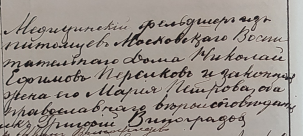 Медицинскій фельдшеръ изъ
питомцевъ Московскаго Воспи
тательнаго Дома Николай
Ефимовъ и законная
жена его Марія Петрова, оба
православнаго вѣроисповѣданія
Григорій Виноградовъ